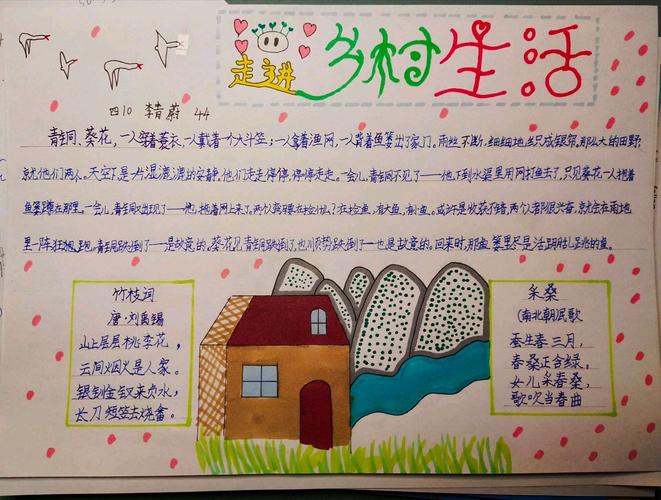 走进乡村生活
四10 李青蔚 44
青铜、葵花,一人穿着蓑衣,一人戴着一个大斗笠;一人拿着渔网,一人背着鱼篓出了家门。雨丝不断,细细地丝只成银帘,那么大的田野,
就他们两个。天空下是一片湿漉漉的安静,他们走走停停,停停走走。一会儿,青铜不见了——他下到水渠里用网打鱼去了,只见葵花一人抱着
鱼篓蹲在那里。一会儿,青铜又出现了——他抱着网上来了。两个人在捡什么?在捡鱼,有大鱼,有小鱼。或许是收获不错,两个人很兴奋,就会在雨地
里一阵狂跑。青铜跌倒了一是故意的。葵花见青铜跌倒了,也顺势跌倒了一也是故意的。回来时,那鱼篓里尽是活蹦乱跳的鱼。
竹枝词
唐·刘禹锡
山上层层桃李花,
云间烟火是人家。
银钏金钗来负水,
长刀短笠去烧畲。
采桑
(南北朝)民歌
蚕生春三月,
春桑正含绿,
女儿采春桑,
歌吹当春曲